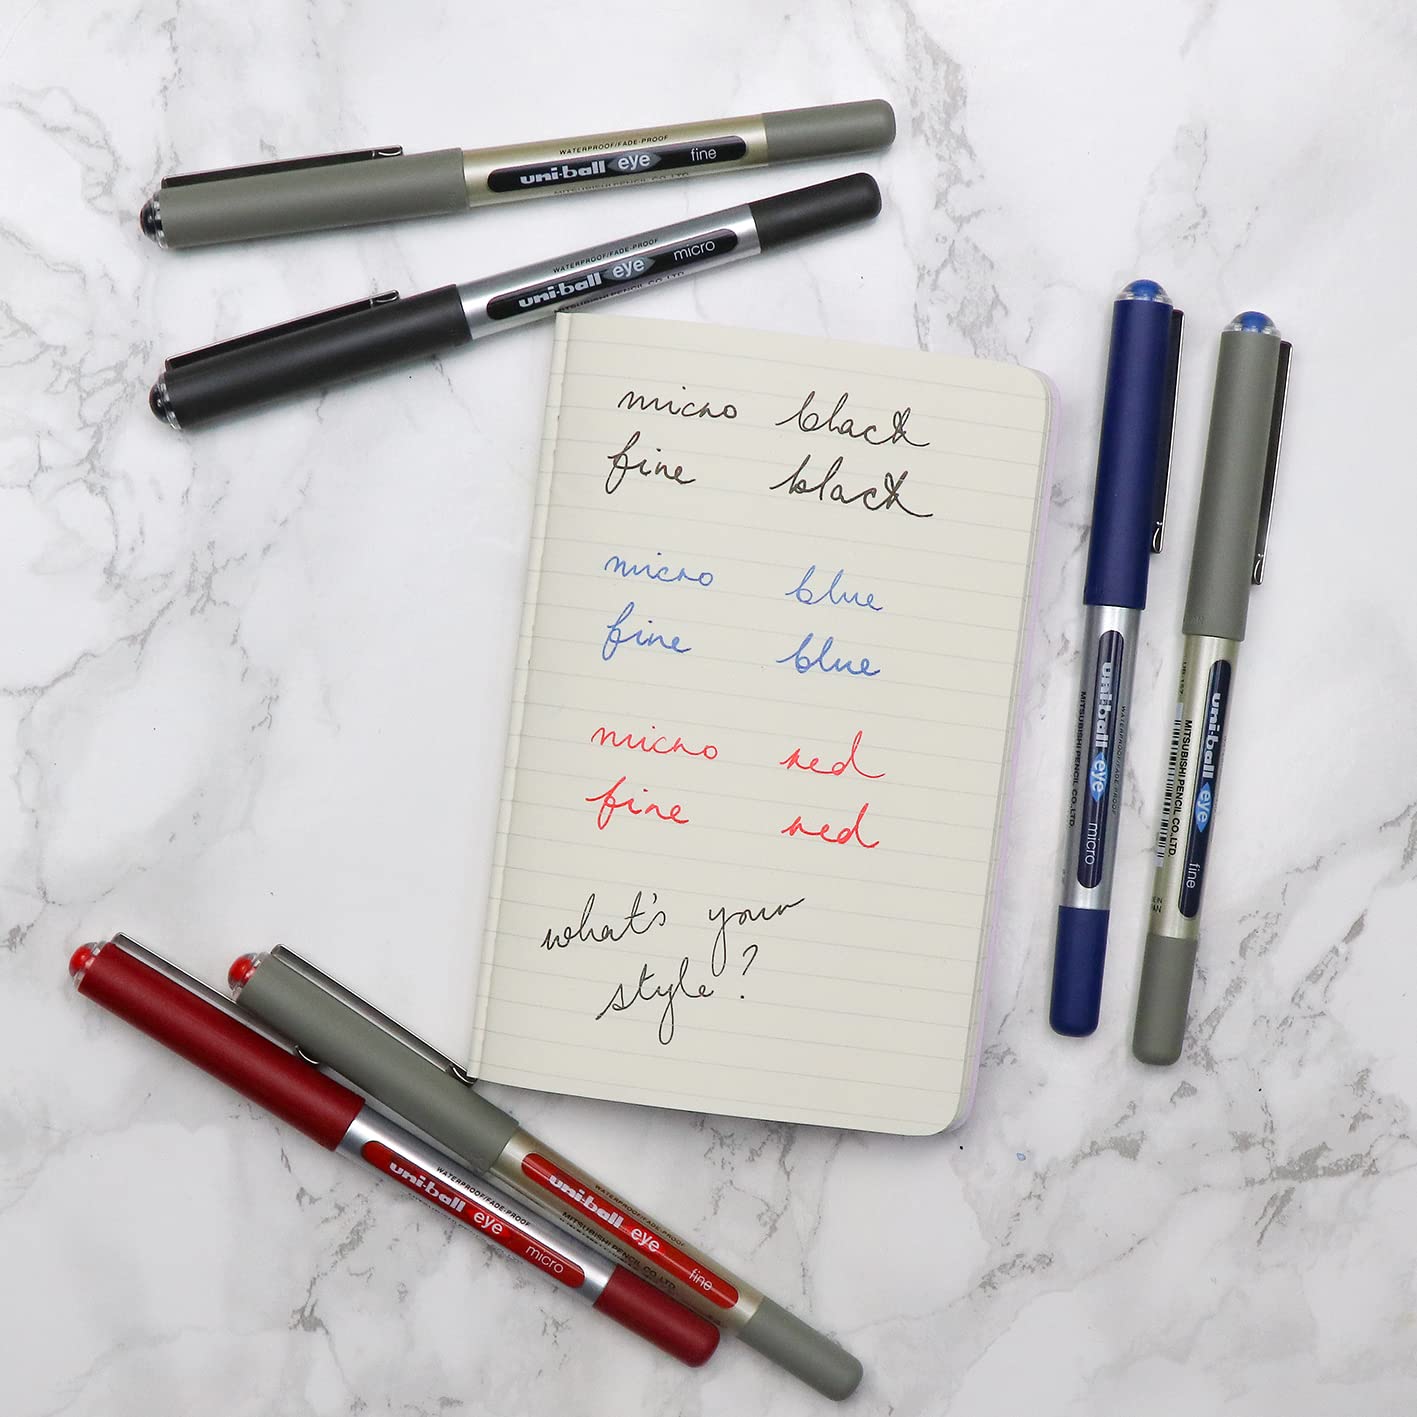 WATERPROOF/FADE-PROOF
uni-ball eye fine
MITSUBISHI PENCIL CO.LTD
WATERPROOF/FADE-PROOF
uni-ball eye micro
MITSUBISHI PENCIL CO.LTD
micro black
fine black
micro blue
fine blue
micro red
fine red
what's your
style?
WATERPROOF/FADE-PROOF
uni-ball eye micro
MITSUBISHI PENCIL CO.,LTD.
uni-ball eye fine
MITSUBISHI PENCIL CO.,LTD.
UB-157
WATERPROOF/FADE-PROOF
uni-ball eye micro
WATERPROOF/FADE-PROOF
uni-ball eye fine
MITSUBISHI PENCIL CO.,LTD.